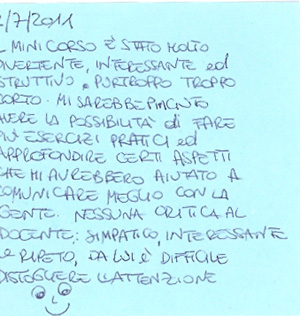 2/7/2011
L MINI CORSO È STATO MOLTO
IVERTENTE, INTERESSANTE ed
STRUTTIVO, PURTROPPO TROPPO
CORTO. MI SAREBBE PIACIUTO
AVERE LA POSSIBILITA' di FARE
PIÙ ESERCIZI PRATICI ed
APPROFONDIRE CERTI ASPETTI
CHE MI AVREBBERO AIUTATO A
COMUNICARE MEGLIO CON LA
GENTE. NESSUNA CRITICA AL
DOCENTE: SIMPATICO, INTERESSANTE
e RIPETO, DA LUI È DIFFICILE
DISTOGLIERE L'ATTENZIONE